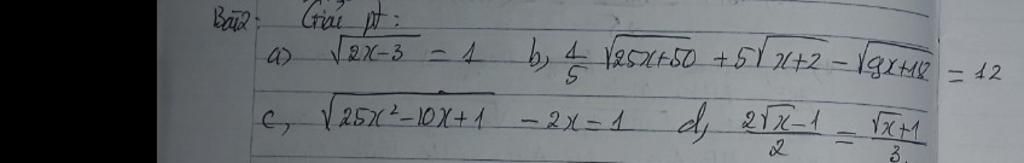 Bài 2: Giải pt:
a) √(2x-3) = 1 b, 1/5 √(25x+50) + 5√(x+2) - √(9x+18) = 12
c, √(25x²-10x+1) - 2x = 1 d, (2√x-1)/2 = (√x+1)/3